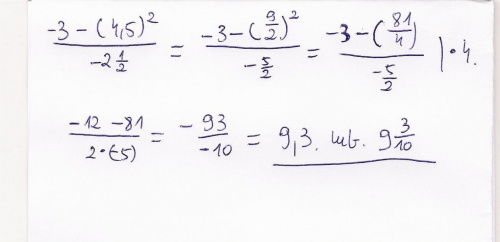 \frac{-3-(4,5)^2}{-2\frac{1}{2}} = \frac{-3-(\frac{9}{2})^2}{-\frac{5}{2}} = \frac{-3-(\frac{81}{4})}{-\frac{5}{2}} | \cdot 4.
\frac{-12-81}{2\cdot(-5)} = \frac{-93}{-10} = 9,3. lub. 9\frac{3}{10}